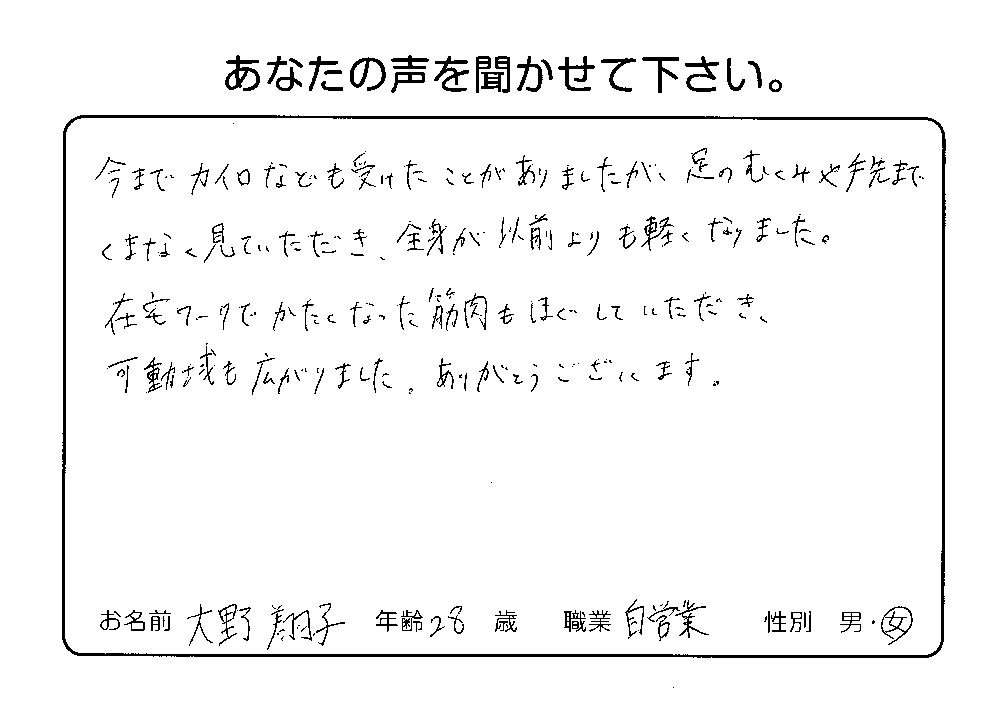 あなたの声を聞かせて下さい。
今までカイロなども受けたことがありましたが、足のむくみや手先まで
くまなく見ていただき、全身が以前よりも軽くなりました。
在宅ワークでかたくなった筋肉もほぐしていただき、
可動域も広がりました。ありがとうございます。
お名前 大野 翔子 年齢 28 歳 職業 自営業 性別 男・女